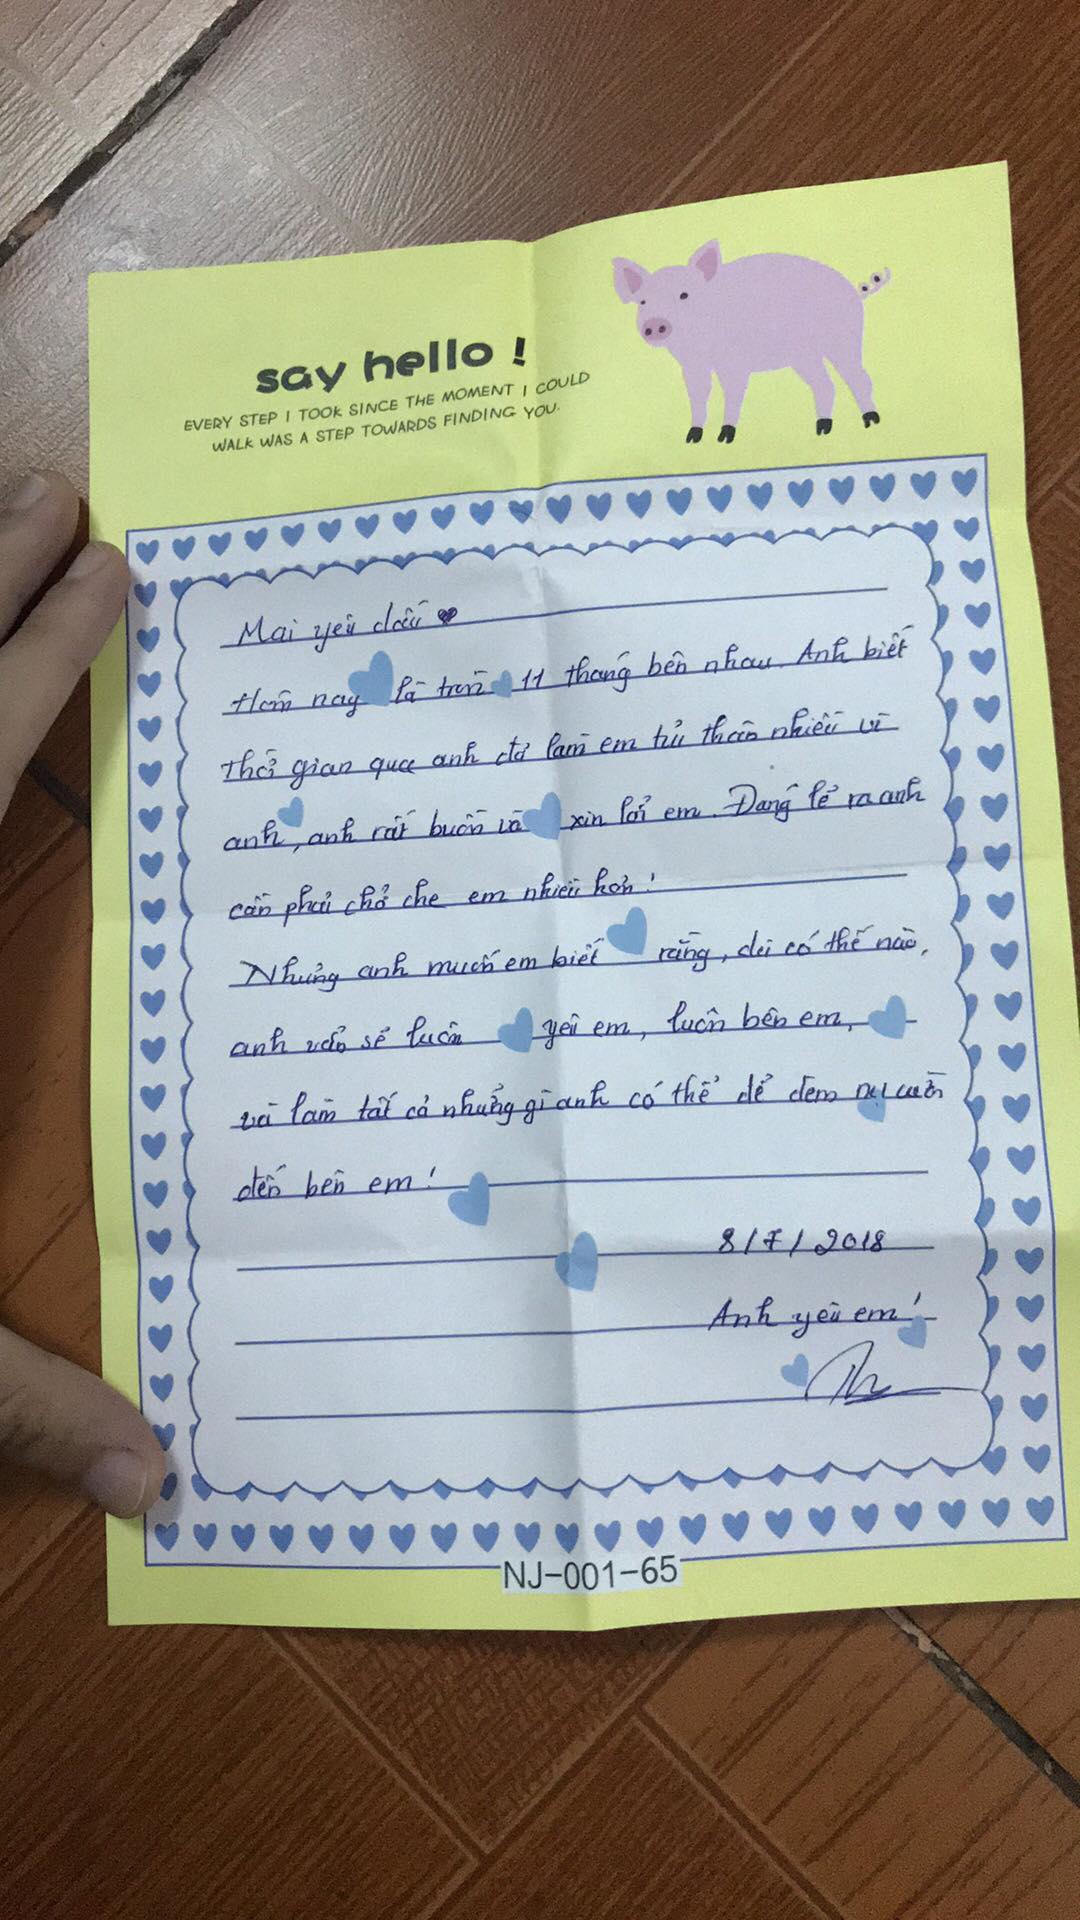 say hello !
EVERY STEP I TOOK SINCE THE MOMENT I COULD
WALK WAS A STEP TOWARDS FINDING YOU.
Mai yêu dấu
Hôm nay là tròn 11 tháng bên nhau. Anh biết
thời gian qua anh đã làm em tủi thân nhiều vì
anh, anh rất buồn và xin lỗi em. Đáng lẽ ra anh
cần phải chở che em nhiều hơn!
Nhưng anh muốn em biết rằng, dù có thế nào,
anh vẫn sẽ luôn yêu em, luôn bên em,
và làm tất cả những gì anh có thể để đem nụ cười
đến bên em!
8/7/2018
Anh yêu em!
NJ-001-65